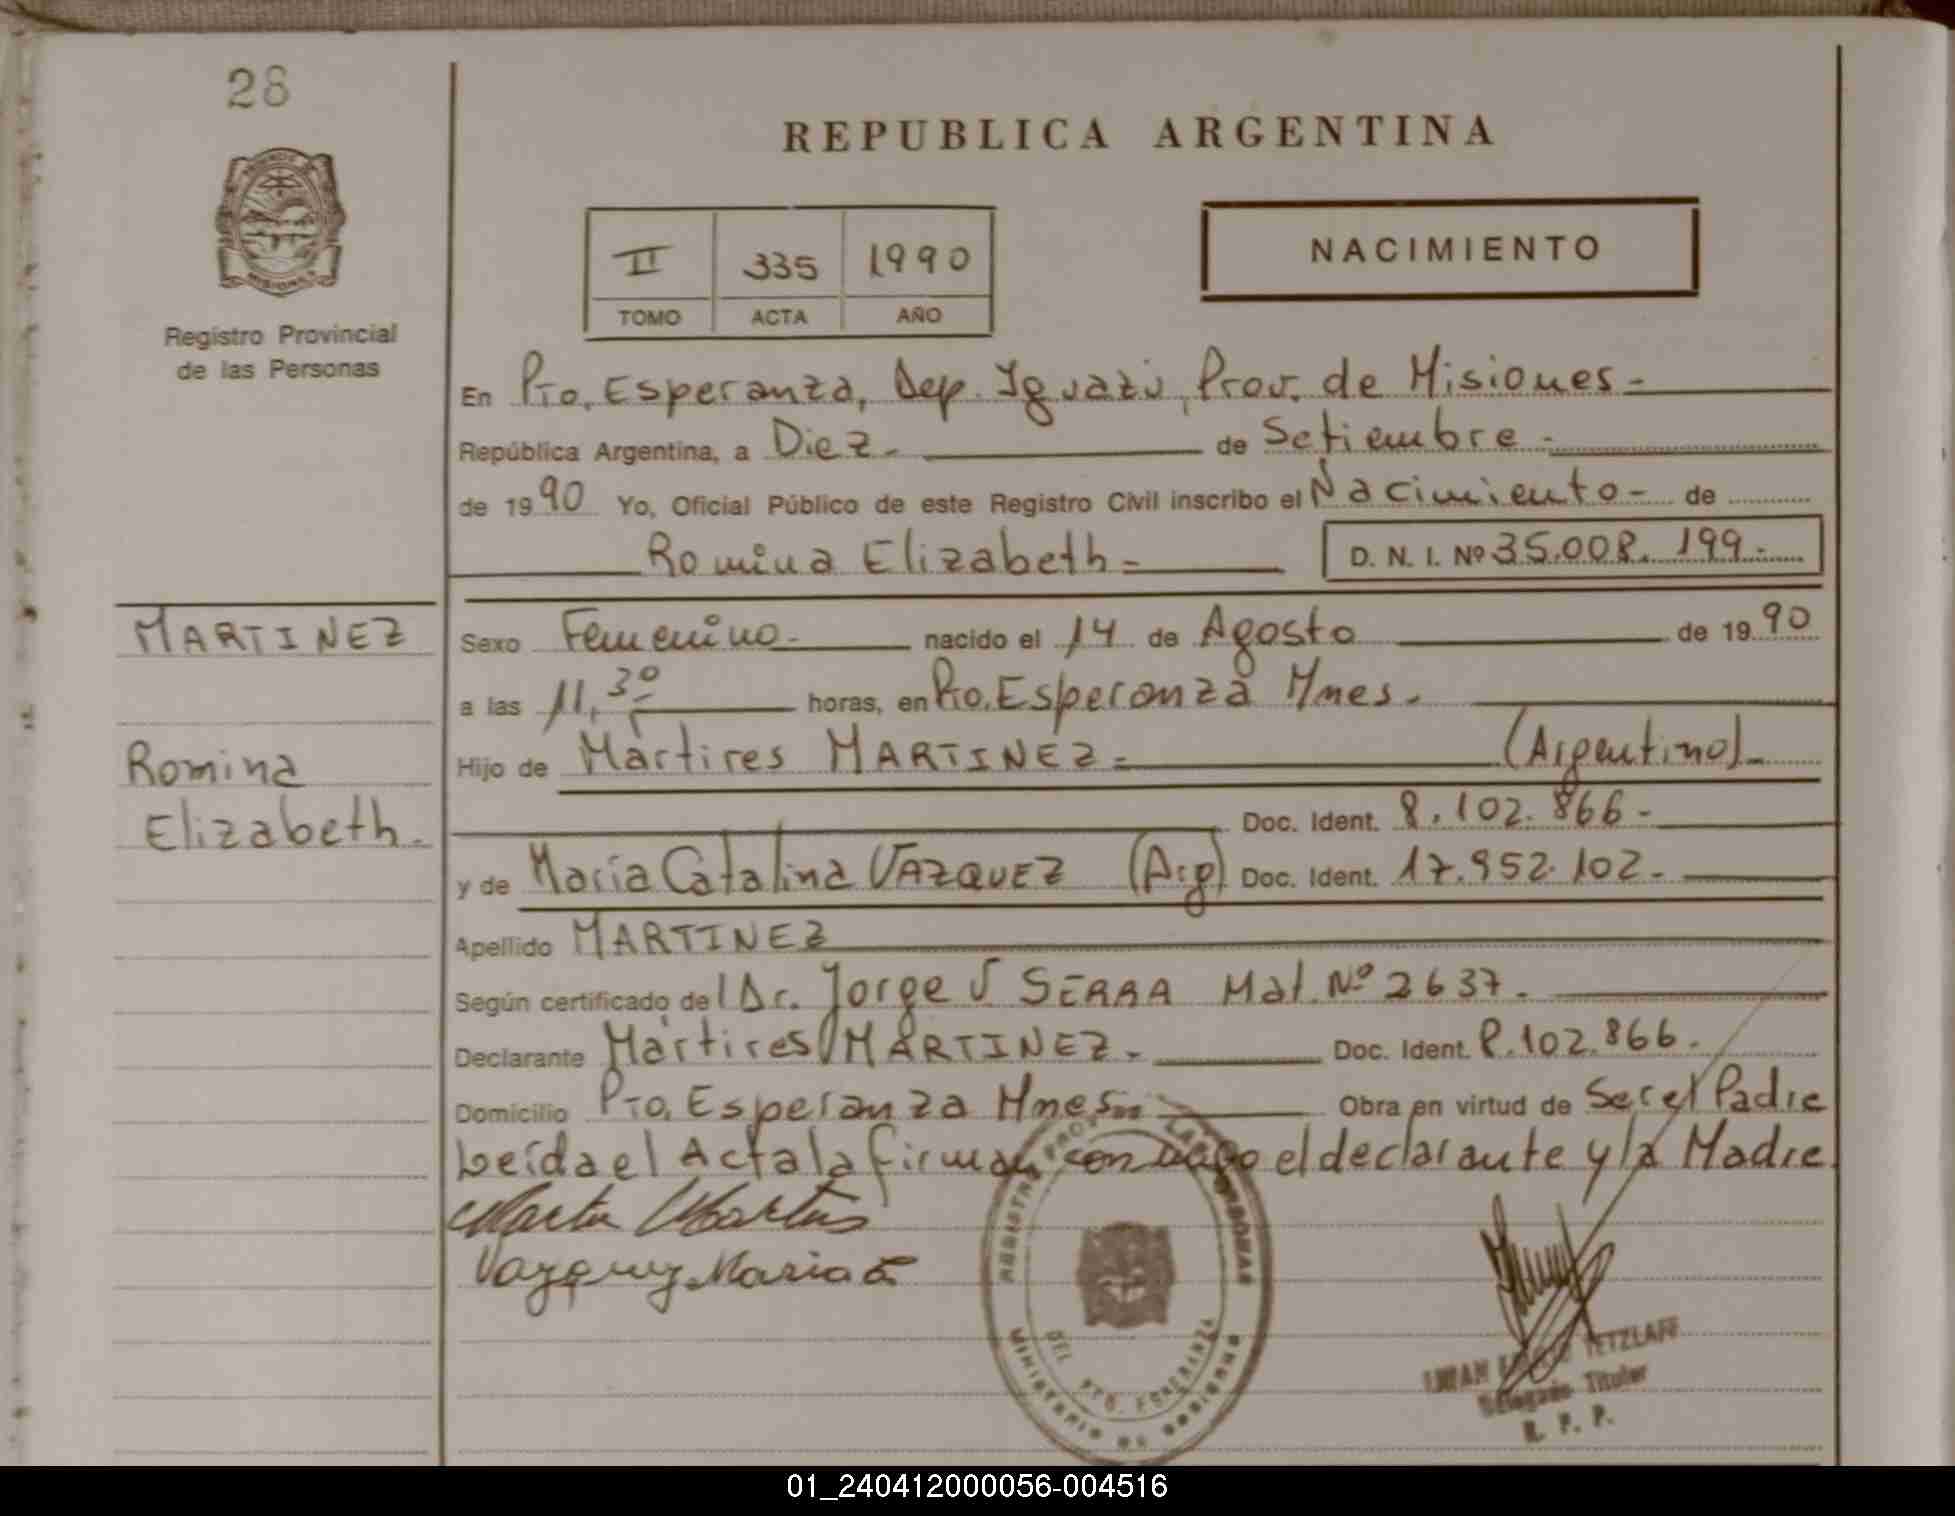 28
REPUBLICA ARGENTINA
II 335 1990
TOMO ACTA AÑO
NACIMIENTO
MISIONES
Registro Provincial
de las Personas
En Pto. Esperanza, Dep. Iguazú, Prov. de Misiones -
República Argentina, a Diez - de Setiembre -
de 1990 Yo, Oficial Público de este Registro Civil inscribo el Nacimiento - de
Romina Elizabeth = D. N. I. Nº 35.008.199 -
MARTINEZ
Romina
Elizabeth -
Sexo Femenino - nacido el 14 de Agosto de 1990
a las 11,30 horas, en Pto. Esperanza Mnes -
Hijo de Mártires MARTINEZ = (Argentino) -
Doc. Ident. 8.102.866 -
y de María Catalina VAZQUEZ (Arg) Doc. Ident. 17.952.102 -
Apellido MARTINEZ
Según certificado del Dr. Jorge V SERRA Mat. Nº 2637 -
Declarante Mártires MARTINEZ - Doc. Ident. 8.102.866 -
Domicilio Pto. Esperanza Mnes - Obra en virtud de Ser el Padre
Leída el Acta la firman el declarante y la Madre
Vazquez Maria
REGISTRO DE LAS PERSONAS
DEL PTO. ESPERANZA
MINISTERIO DE GOBIERNO
TETZLAFF
Delegado Titular
R. P. P.
01_240412000056-004516